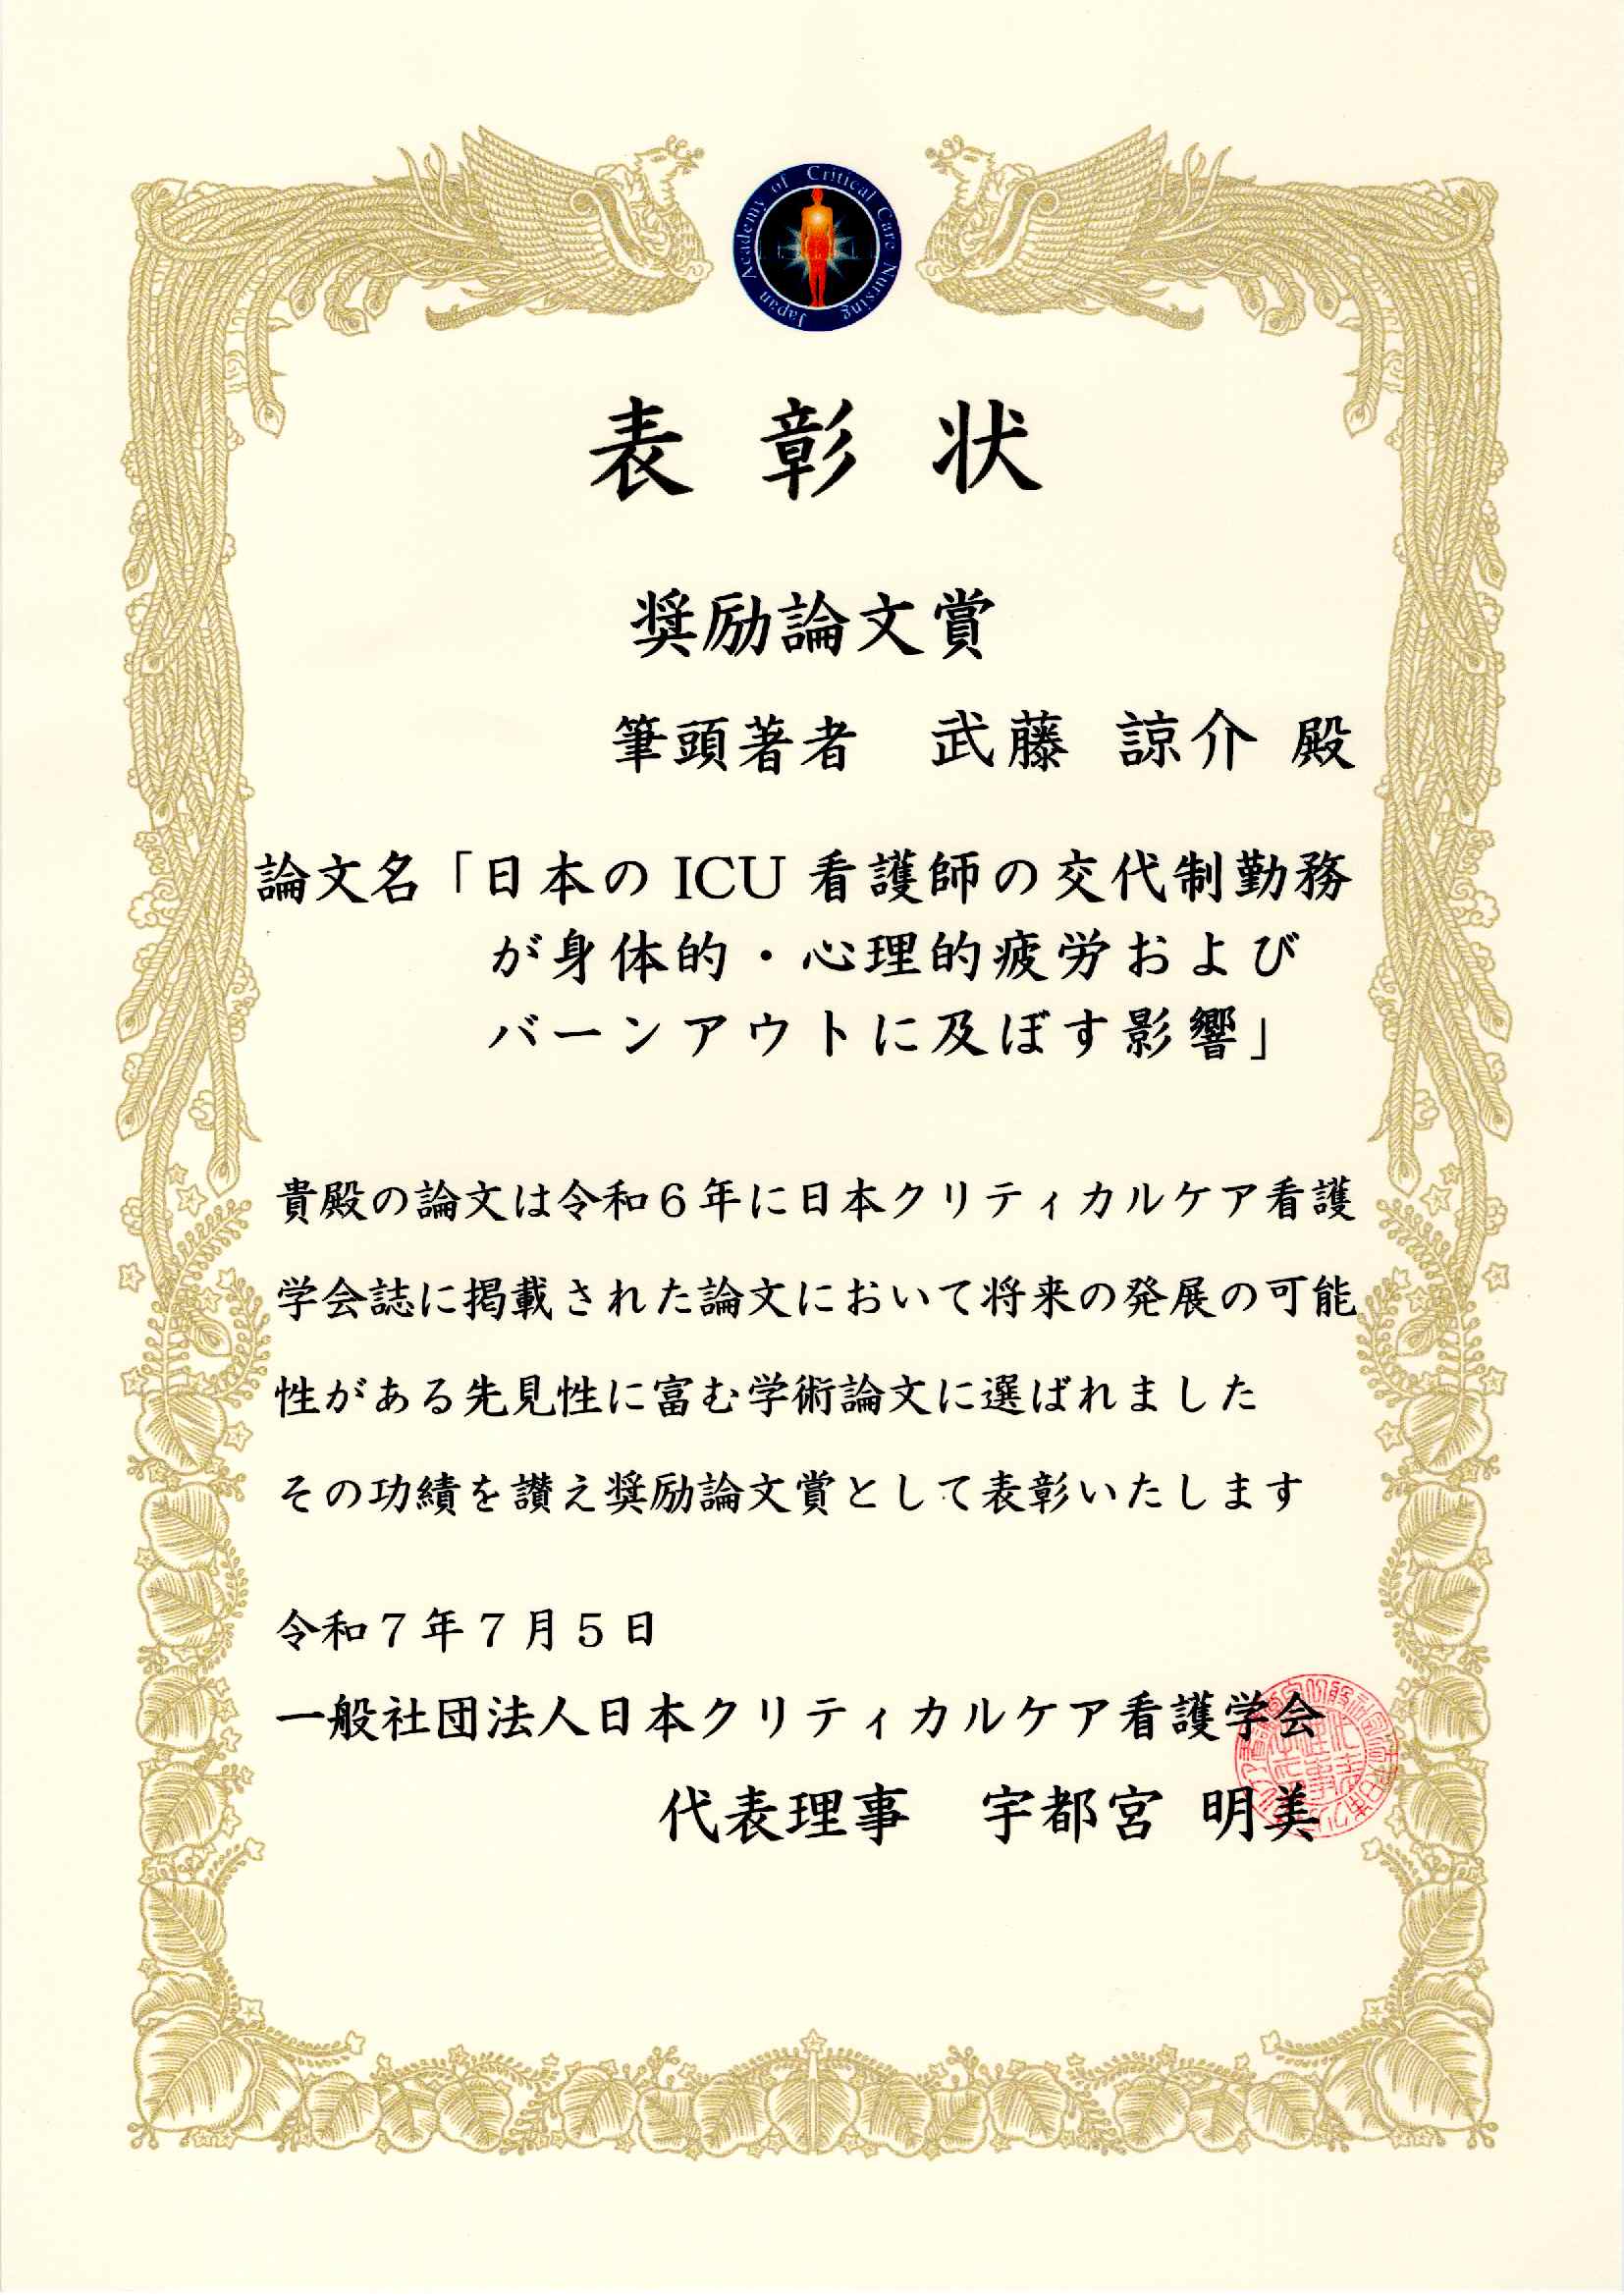 Japan Academy of Critical Care Nursing
表彰状
奨励論文賞
筆頭著者 武藤 諒介 殿
論文名「日本の ICU 看護師の交代制勤務
が身体的・心理的疲労および
バーンアウトに及ぼす影響」
貴殿の論文は令和６年に日本クリティカルケア看護
学会誌に掲載された論文において将来の発展の可能
性がある先見性に富む学術論文に選ばれました
その功績を讃え奨励論文賞として表彰いたします
令和７年７月５日
一般社団法人日本クリティカルケア看護学会
代表理事 宇都宮 明美